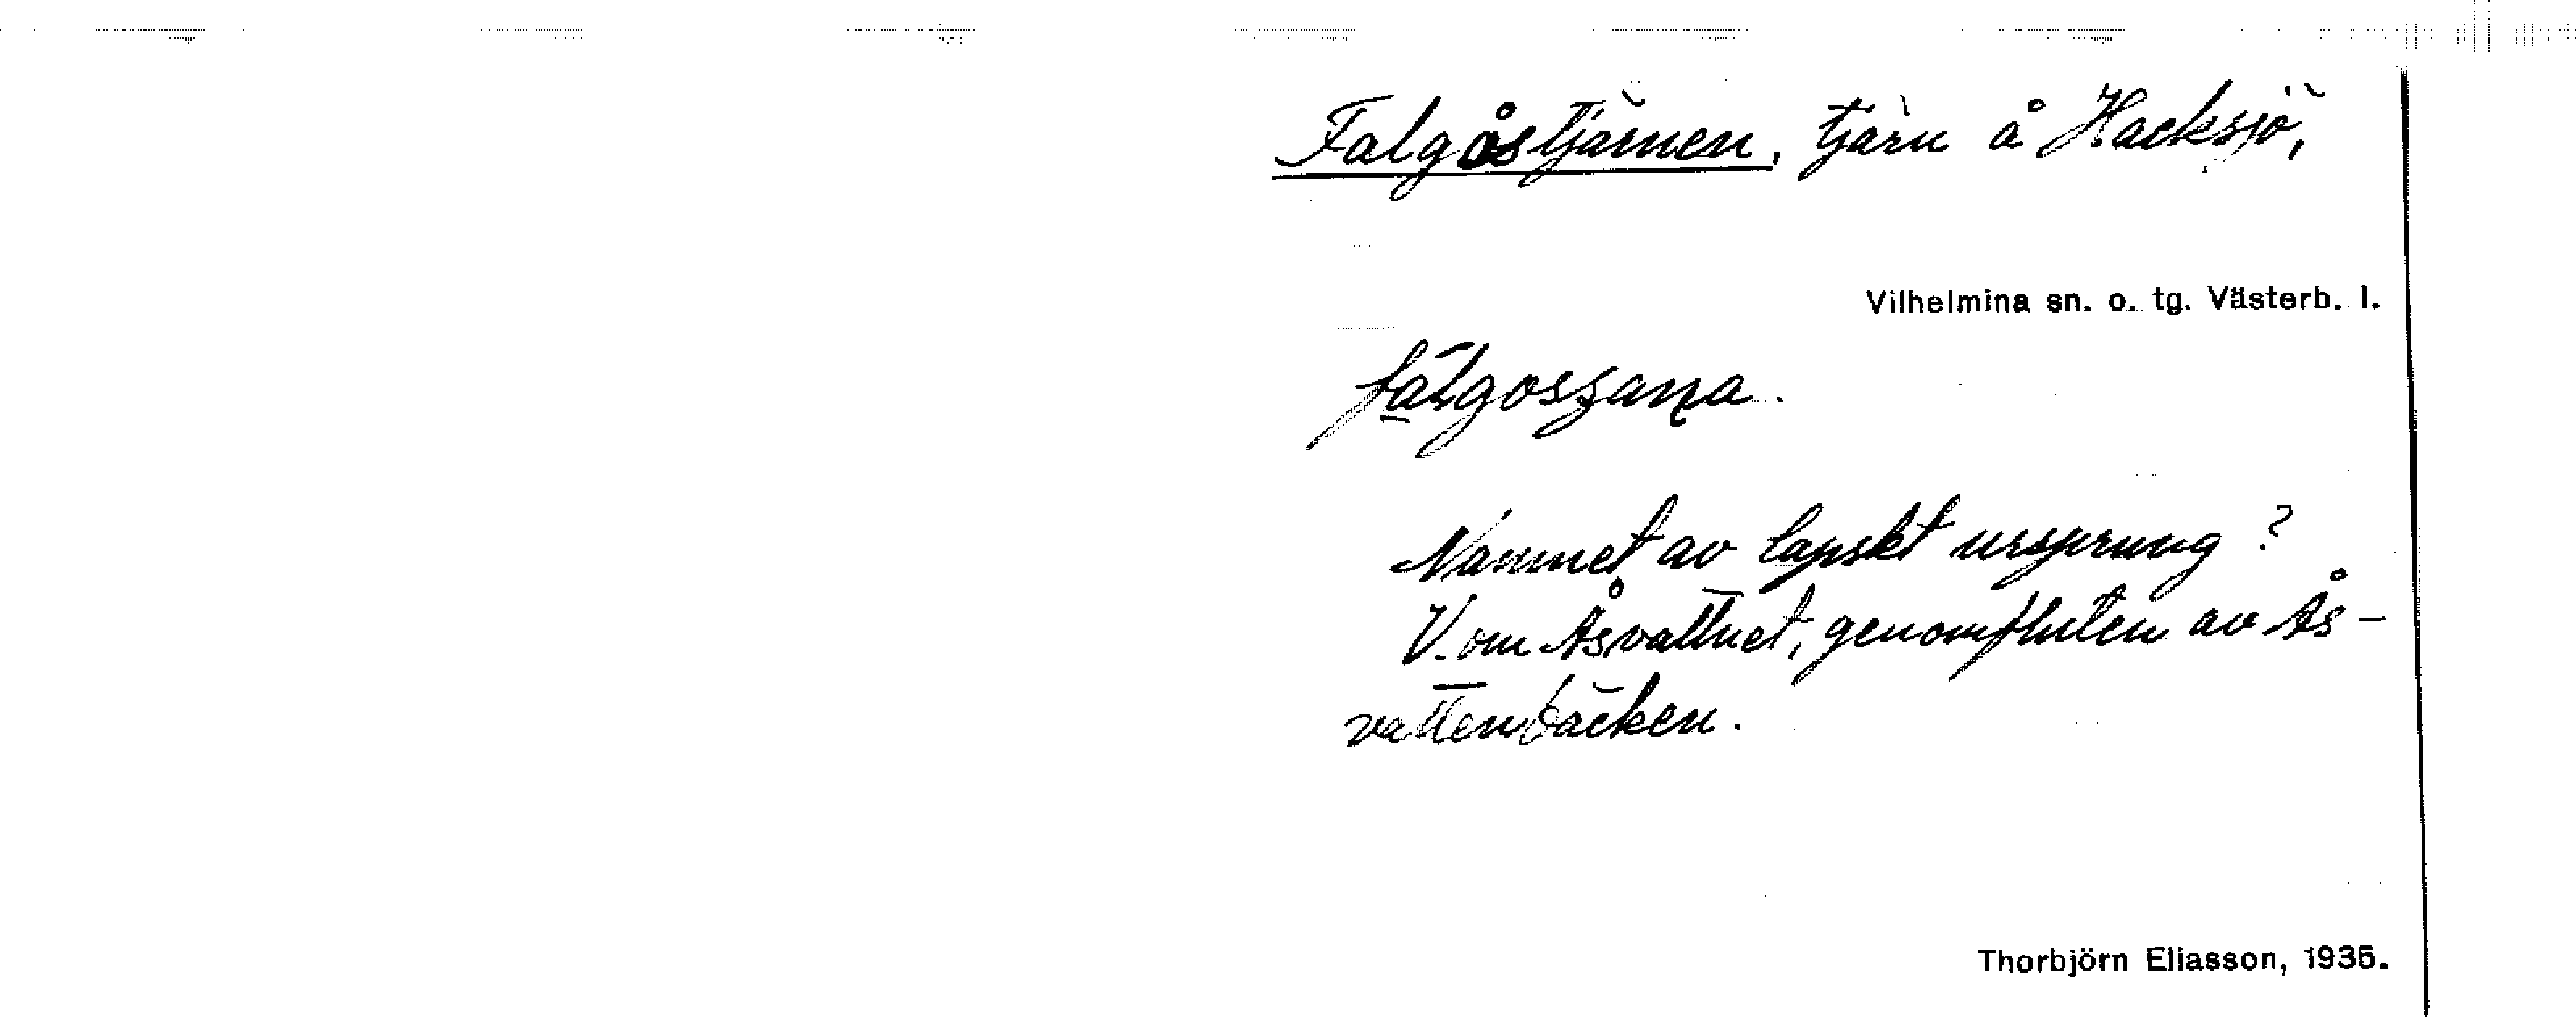 Falgåstjärnen, tjärn å Hacksjö,
Vilhelmina sn. o. tg. Västerb. l.
Namnet av lapskt ursprung?
V. om Åsvattnet, genomfluten av Ås-
vattenbäcken.
Thorbjörn Eliasson, 1935.